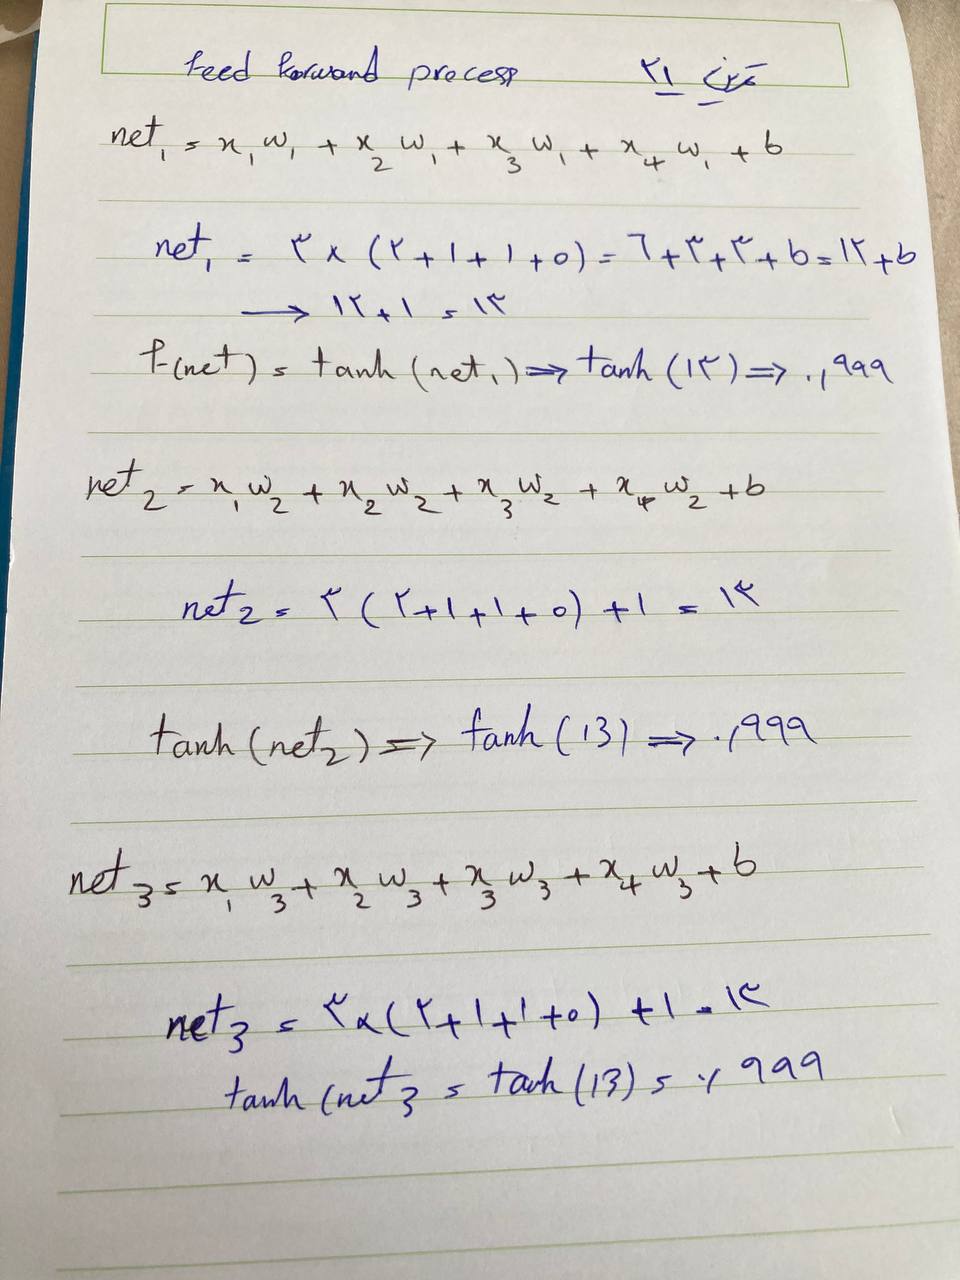 feed forward process تمرین ۲۱
net₁ = x₁w₁ + x₂w₁ + x₃w₁ + x₄w₁ + b
net₁ = ۳ × (۲+۱+۱+0) = 6+۳+۳+b = ۱۲+b
→ ۱۲+۱ = ۱۳
f(net) = tanh(net₁) ⇒ tanh(۱۳) ⇒ ۰,۹۹۹
net₂ = x₁w₂ + x₂w₂ + x₃w₂ + x₄w₂ + b
net₂ = ۳(۲+۱+۱+0)+۱ = ۱۳
tanh(net₂) ⇒ tanh(13) ⇒ ۰,۹۹۹
net₃ = x₁w₃ + x₂w₃ + x₃w₃ + x₄w₃ + b
net₃ = ۳×(۲+۱+۱+0)+۱ = ۱۳
tanh(net₃ = tanh(13) = ۰,۹۹۹